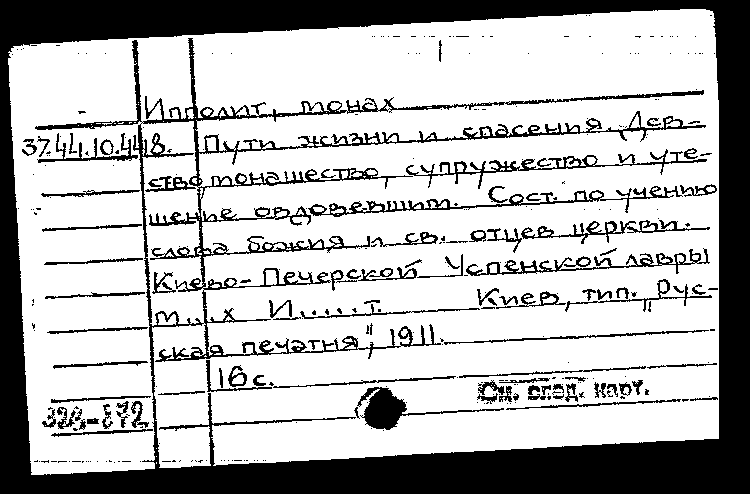 Ипполит, монах
37.44.10.448. Пути жизни и спасения. Дев-
ство, монашество, супружество и уте-
шение овдовевшим. Сост. по учению
слова божия и св. отцев церкви.
Киево-Печерской Успенской лавры
м...х И.....т. Киев, тип. „Рус-
ская печатня", 1911.
16 с.
См. след. карт.
328-872